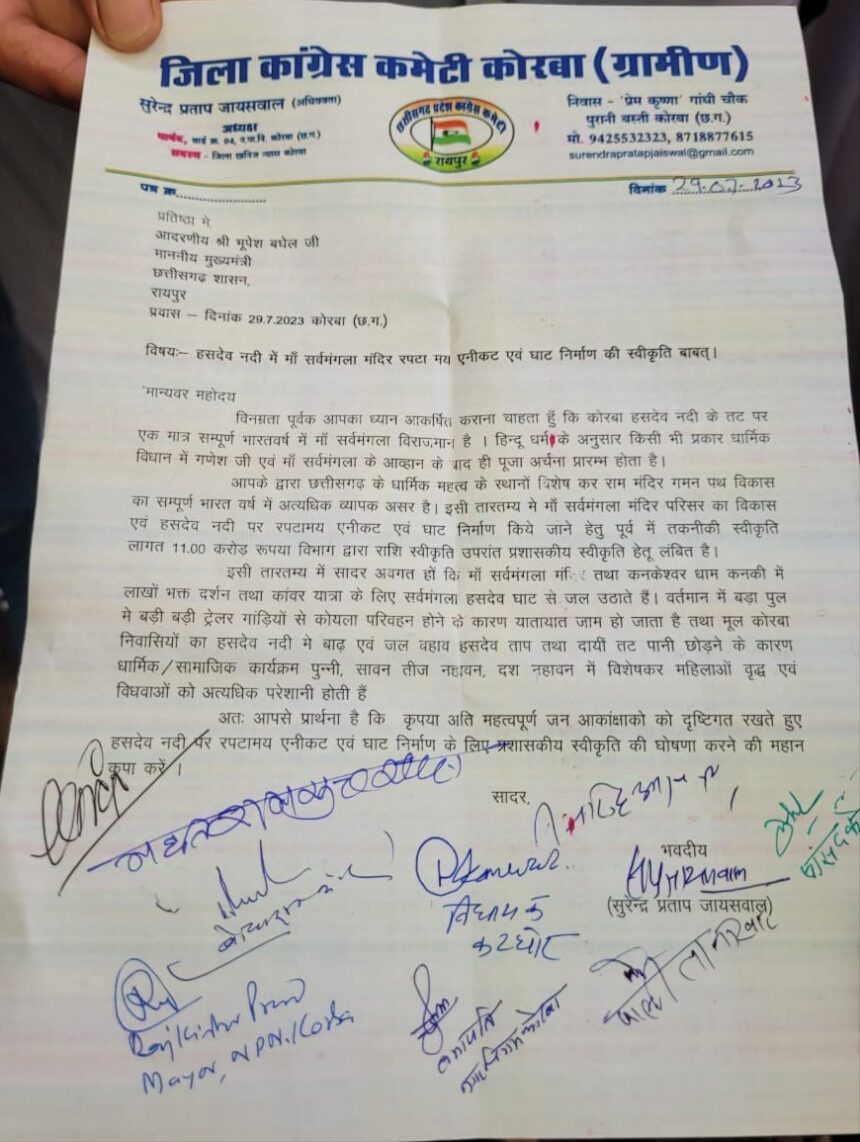 जिला कांग्रेस कमेटी कोरबा (ग्रामीण)
सुरेन्द्र प्रताप जायसवाल (अधिवक्ता)
अध्यक्ष
पार्षद, वार्ड क्र. 04, न.पा.नि. कोरबा (छ.ग.)
सदस्य - जिला खनिज न्यास कोरबा
छत्तीसगढ़ प्रदेश कांग्रेस कमेटी
रायपुर
निवास - 'प्रेम कृष्णा' गांधी चौक
पुरानी बस्ती कोरबा (छ.ग.)
मो. 9425532323, 8718877615
surendrapratapjaiswal@gmail.com
पत्र क्र......................
दिनांक 29.07.2023
प्रतिष्ठा मे,
आदरणीय श्री भूपेश बघेल जी
माननीय मुख्यमंत्री
छत्तीसगढ़ शासन,
रायपुर
प्रवास – दिनांक 29.7.2023 कोरबा (छ.ग.)
विषयः– हसदेव नदी में माँ सर्वमंगला मंदिर रपटा मय एनीकट एवं घाट निर्माण की स्वीकृति बाबत्।
मान्यवर महोदय
विनम्रता पूर्वक आपका ध्यान आकर्षित कराना चाहता हूँ कि कोरबा हसदेव नदी के तट पर
एक मात्र सम्पूर्ण भारतवर्ष में माँ सर्वमंगला विराजमान है । हिन्दू धर्म के अनुसार किसी भी प्रकार धार्मिक
विधान में गणेश जी एवं माँ सर्वमंगला के आव्हान के बाद ही पूजा अर्चना प्रारम्भ होता है।
आपके द्वारा छत्तीसगढ़ के धार्मिक महत्व के स्थानों विशेष कर राम मंदिर गमन पथ विकास
का सम्पूर्ण भारत वर्ष में अत्यधिक व्यापक असर है। इसी तारतम्य मे माँ सर्वमंगला मंदिर परिसर का विकास
एवं हसदेव नदी पर रपटामय एनीकट एवं घाट निर्माण किये जाने हेतु पूर्व में तकनीकी स्वीकृति
लागत 11.00 करोड़ रूपया विभाग द्वारा राशि स्वीकृति उपरांत प्रशासकीय स्वीकृति हेतू लंबित है।
इसी तारतम्य में सादर अवगत हों कि माँ सर्वमंगला तथा कनकेश्वर धाम कनकी में
लाखों भक्त दर्शन तथा कांवर यात्रा के लिए सर्वमंगला हसदेव घाट से जल उठाते हैं। वर्तमान में बड़ा पुल
मे बड़ी बड़ी ट्रेलर गांड़ियों से कोयला परिवहन होने के कारण यातायात जाम हो जाता है तथा मूल कोरबा
निवासियों का हसदेव नदी मे बाढ़ एवं जल वहाव हसदेव ताप तथा दायीं तट पानी छोड़ने के कारण
धार्मिक/सामाजिक कार्यक्रम पुन्नी, सावन तीज नहावन, दश नहावन में विशेषकर महिलाओं वृद्ध एवं
विधवाओं को अत्यधिक परेशानी होती हैं
अतः आपसे प्रार्थना है कि कृपया अति महत्वपूर्ण जन आकांक्षाको को दृष्टिगत रखते हुए
हसदेव नदी पर रपटामय एनीकट एवं घाट निर्माण के लिए प्रशासकीय स्वीकृति की घोषणा करने की महान
कृपा करें ।
सादर,
भवदीय
(सुरेन्द्र प्रताप जायसवाल)
विधायक
कटघोरा
पाली तानाखार
Mayor, N.P.N. Korba
सभापति